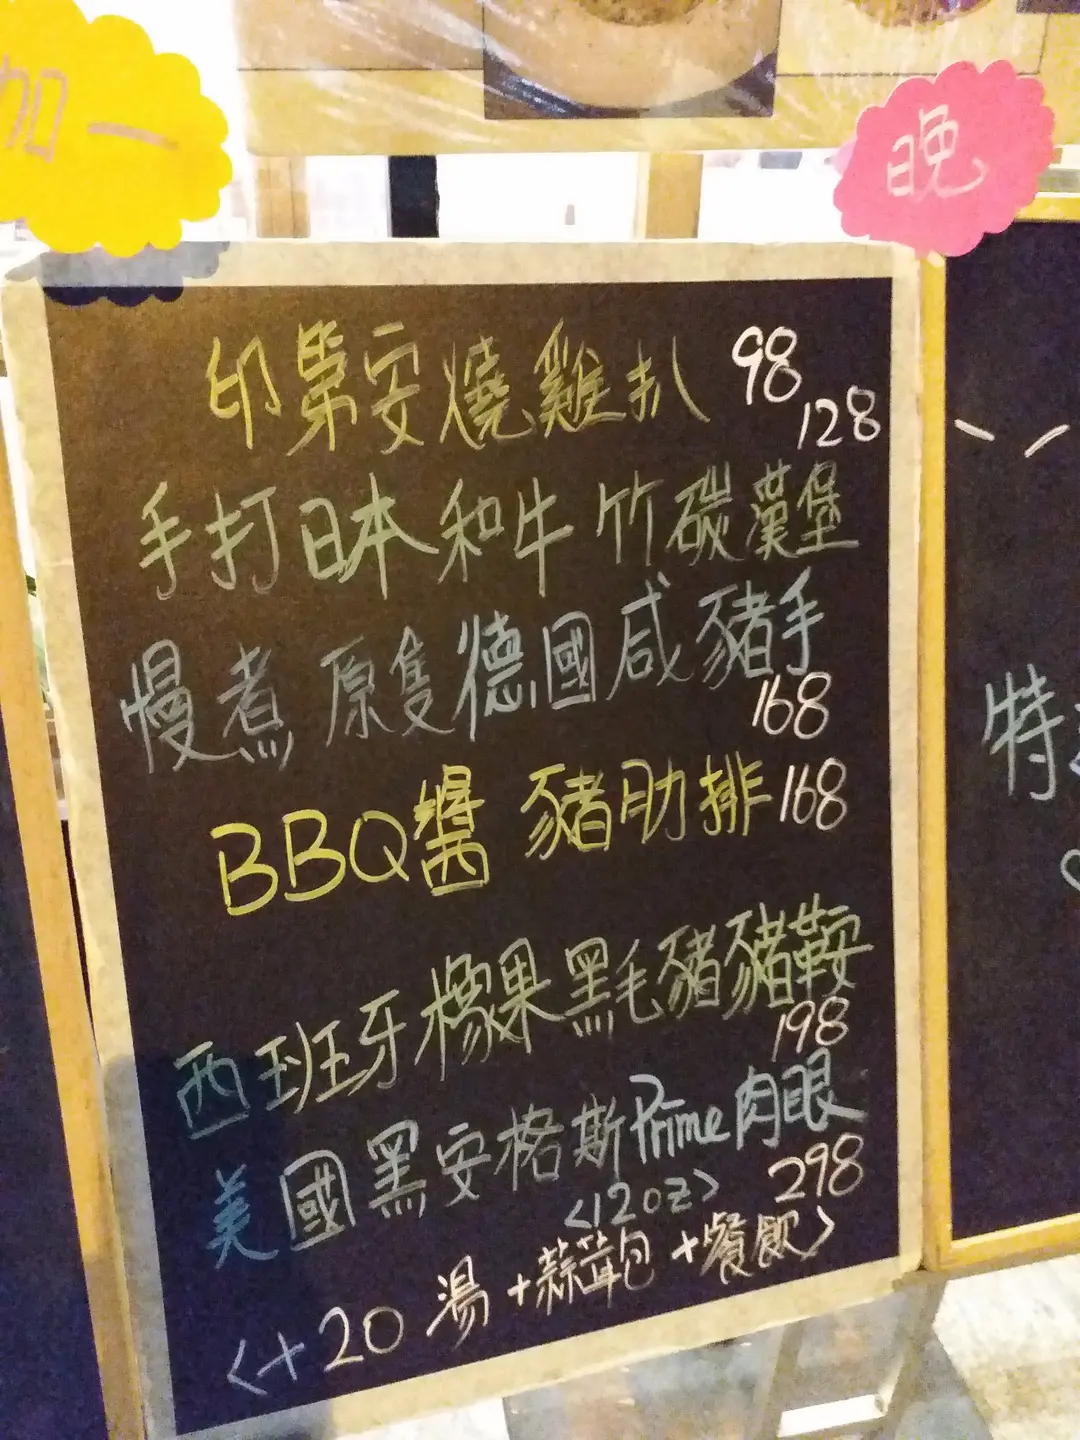 加一
晚
印第安燒雞扒 98
128
手打日本和牛竹碳漢堡
慢煮原隻德國咸豬手
168
BBQ醬 豬肋排 168
西班牙橡果黑毛豬豬鞍
198
美國黑安格斯Prime肉眼
<12oz> 298
<+20 湯+蒜茸包+餐飲>
特